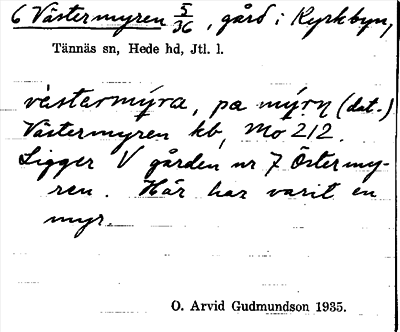 6 Västermyren 5/36, gård i Kyrkbyn,
Tännäs sn, Hede hd, Jtl. l.
västermýra, pa mýrn (dat.)
Västermyren kb, Mo 212.
Ligger V gården nr 7 Östermy-
ren. Här har varit en
myr.
O. Arvid Gudmundson 1935.